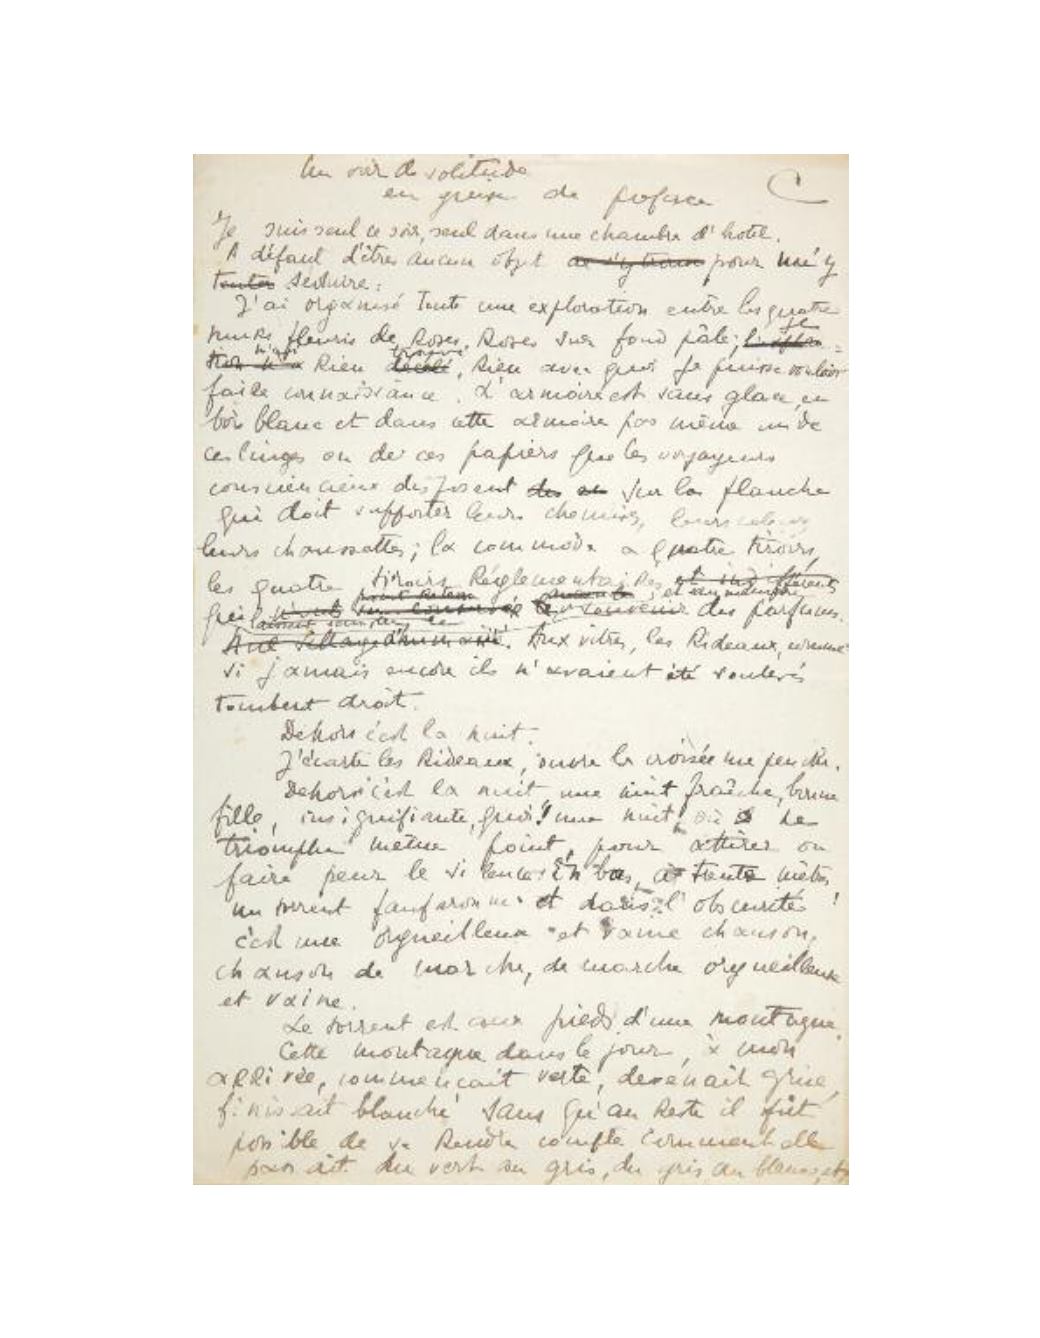 Un soir de solitude
en guise de préface
Je suis seul ce soir, seul dans une chambre d'hôtel.
A défaut d'êtres aucun objet pour m'y
tenter séduire:
J'ai organisé toute une exploration entre les quatre
murs fleuris de Roses, Roses sur fond pâle; je
n'ai Rien trouvé, Rien avec quoi je puisse vouloir
faire connaissance. L'armoire est sans glace, en
bois blanc et dans cette armoire pas même un de
ces linges ou de ces papiers que les voyageurs
consciencieux disposent des en sur la planche
qui doit supporter leurs chemises, leurs
leurs chaussettes; la commode a quatre tiroirs,
les quatre tiroirs Réglementaires, et indifférents
souvenir des parfums.
Aux vitres, les Rideaux, comme
si jamais encore ils n'avaient été soulevés
tombent droit.
Dehors c'est la nuit.
J'écarte les Rideaux, ouvre la croisée me penche.
Dehors c'est la nuit une nuit fraîche, bonne
fille, insignifiante, quoi! une nuit où ne
triomphe même point, pour attirer ou
faire peur le silence. En bas, à trente mètres
un torrent fanfaronne et dans l'obscurité
c'est une orgueilleuse et vaine chanson,
chanson de marche, de marche orgueilleuse
et vaine.
Le torrent est aux pieds d'une montagne.
Cette montagne dans le jour, à mon
aRRivée, commençait verte, devenait grise,
finissait blanche sans qu'au Reste il fût
possible de se Rendre compte comment elle
passait du vert au gris, du gris au blanc, et